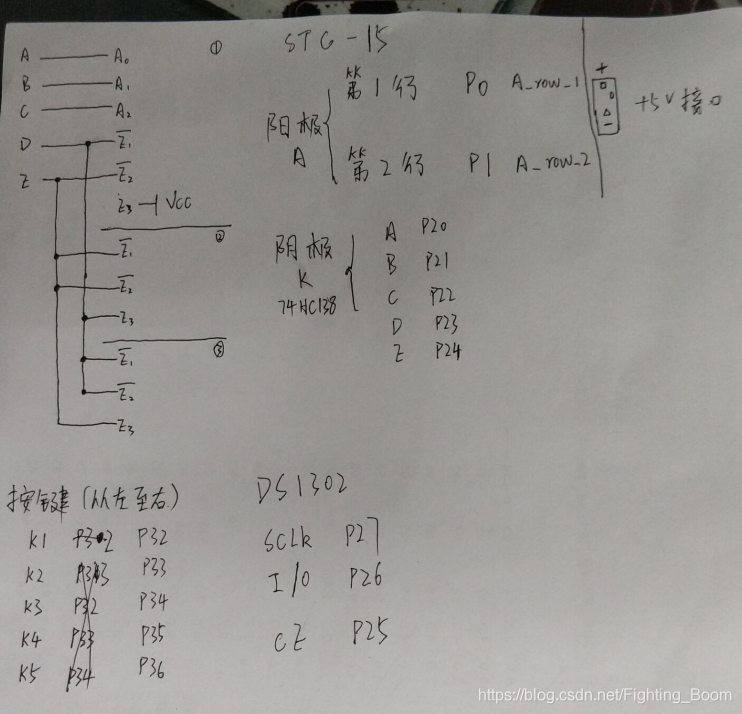 ① STC-15
A A₀
B A₁
C A₂
D Z̅₁
Z Z̅₂
Z₃ VCC
②
Z̅₁
Z̅₂
Z₃
③
Z̅₁
Z̅₂
Z₃
阳极
A
第1行 P0 A_row_1
第2行 P1 A_row_2
+
-
+5V接口
阴极
K
74HC138
A P20
B P21
C P22
D P23
Z P24
按钮建(从左至右)
K1 P32 P32
K2 P33 P33
K3 P32 P34
K4 P33 P35
K5 P34 P36
DS1302
SCLK P27
I/O P26
CE P25
https://blog.csdn.net/Fighting_Boom